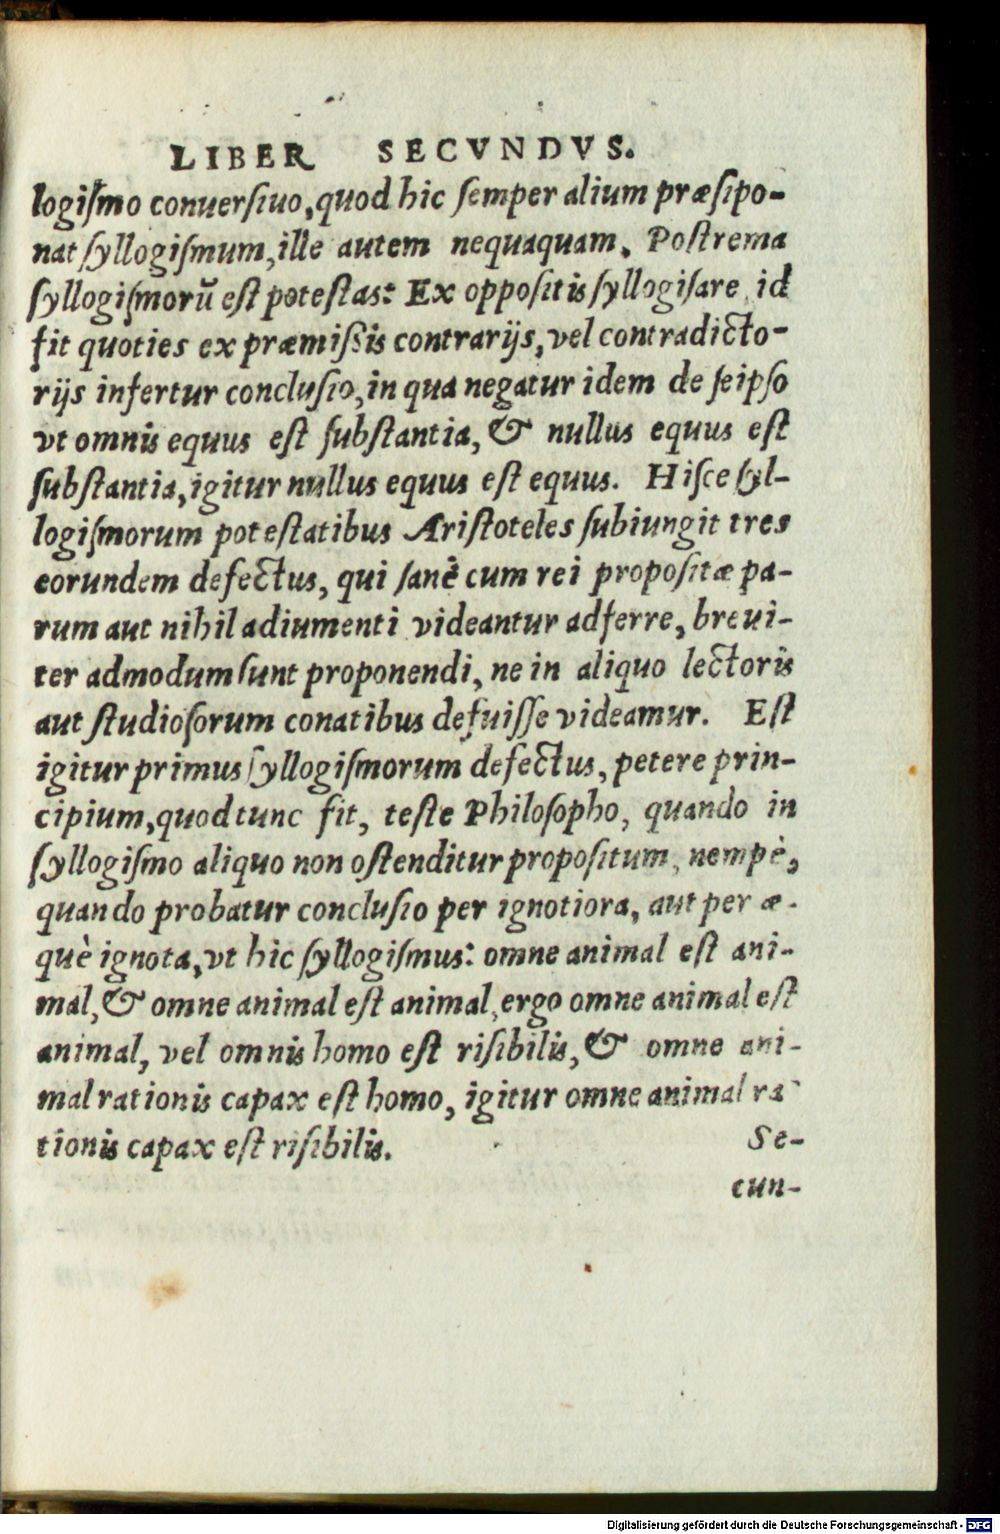 LIBER SECVNDVS.
logiſmo conuerſiuo, quod hic ſemper alium præſipo-
nat ſyllogiſmum, ille autem nequaquam. Poſtrema
ſyllogiſmorũ eſt poteſtas: Ex oppoſitis ſyllogiſare, id
fit quoties ex præmiſsis contrarijs, vel contradicto-
rijs infertur concluſio, in qua negatur idem de ſeipſo
vt omnis equus eſt ſubſtantia, & nullus equus eſt
ſubſtantia, igitur nullus equus eſt equus. Hiſce ſyl-
logiſmorum poteſtatibus Ariſtoteles ſubiungit tres
eorundem defectus, qui ſanè cum rei propoſitæ pa-
rum aut nihil adiumenti videantur adferre, breui-
ter admodum ſunt proponendi, ne in aliquo lectoris
aut ſtudioſorum conatibus defuiſſe videamur. Eſt
igitur primus ſyllogiſmorum defectus, petere prin-
cipium, quod tunc fit, teſte Philoſopho, quando in
ſyllogiſmo aliquo non oſtenditur propoſitum, nempè,
quando probatur concluſio per ignotiora, aut per æ-
què ignota, vt hic ſyllogiſmus: omne animal eſt ani-
mal, & omne animal eſt animal, ergo omne animal eſt
animal, vel omnis homo eſt riſibilis, & omne ani-
mal rationis capax eſt homo, igitur omne animal ra-
tionis capax eſt riſibilis. Se-
cun-
Digitalisierung gefördert durch die Deutsche Forschungsgemeinschaft - DFG